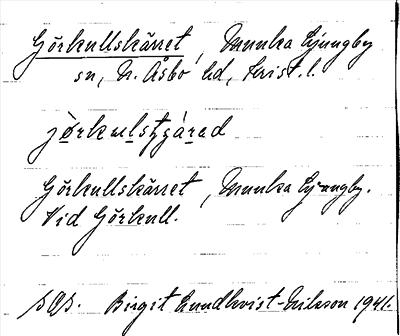 Görkullskärret, Munka Ljungby
sn, N. Åsbo hd, Krist. l.
jörkulsꞩgárad
Görkullskärret, Munka Ljungby.
Vid Görkull.
SOS. Birgit Lundkvist-Nilsson 1941.